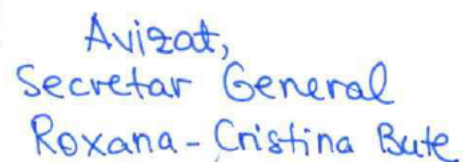 Avizat,
Secretar General
Roxana-Cristina Bute